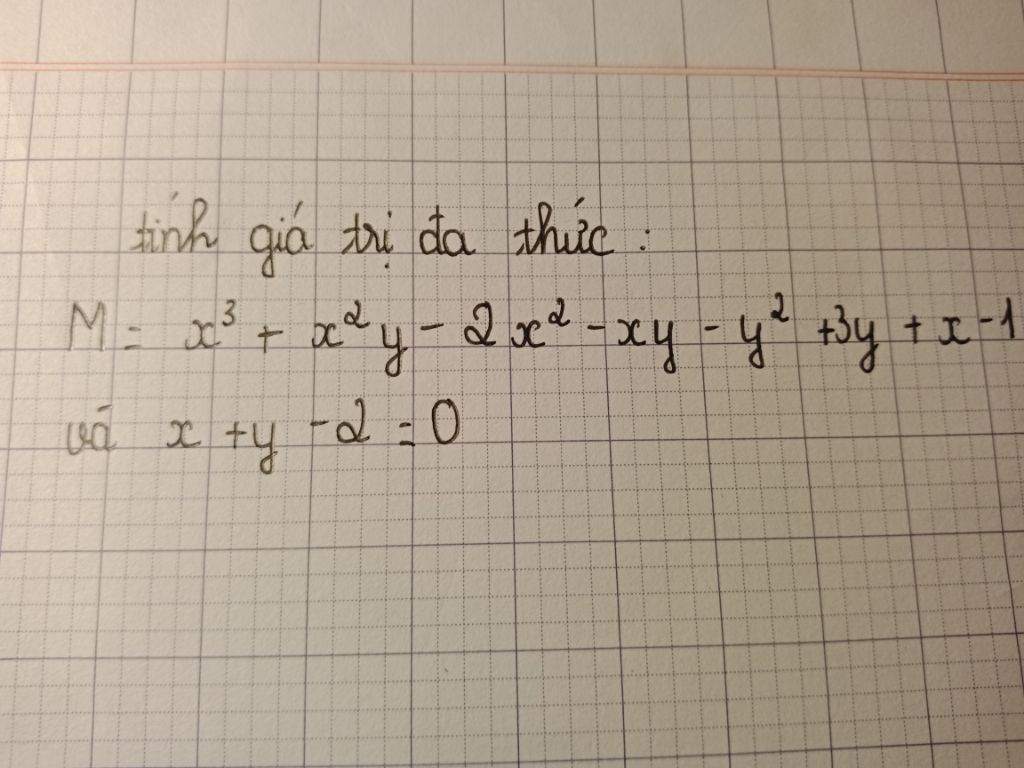 tính giá trị đa thức :
M = x³ + x²y - 2x² - xy - y² + 3y + x - 1
và x + y - 2 = 0